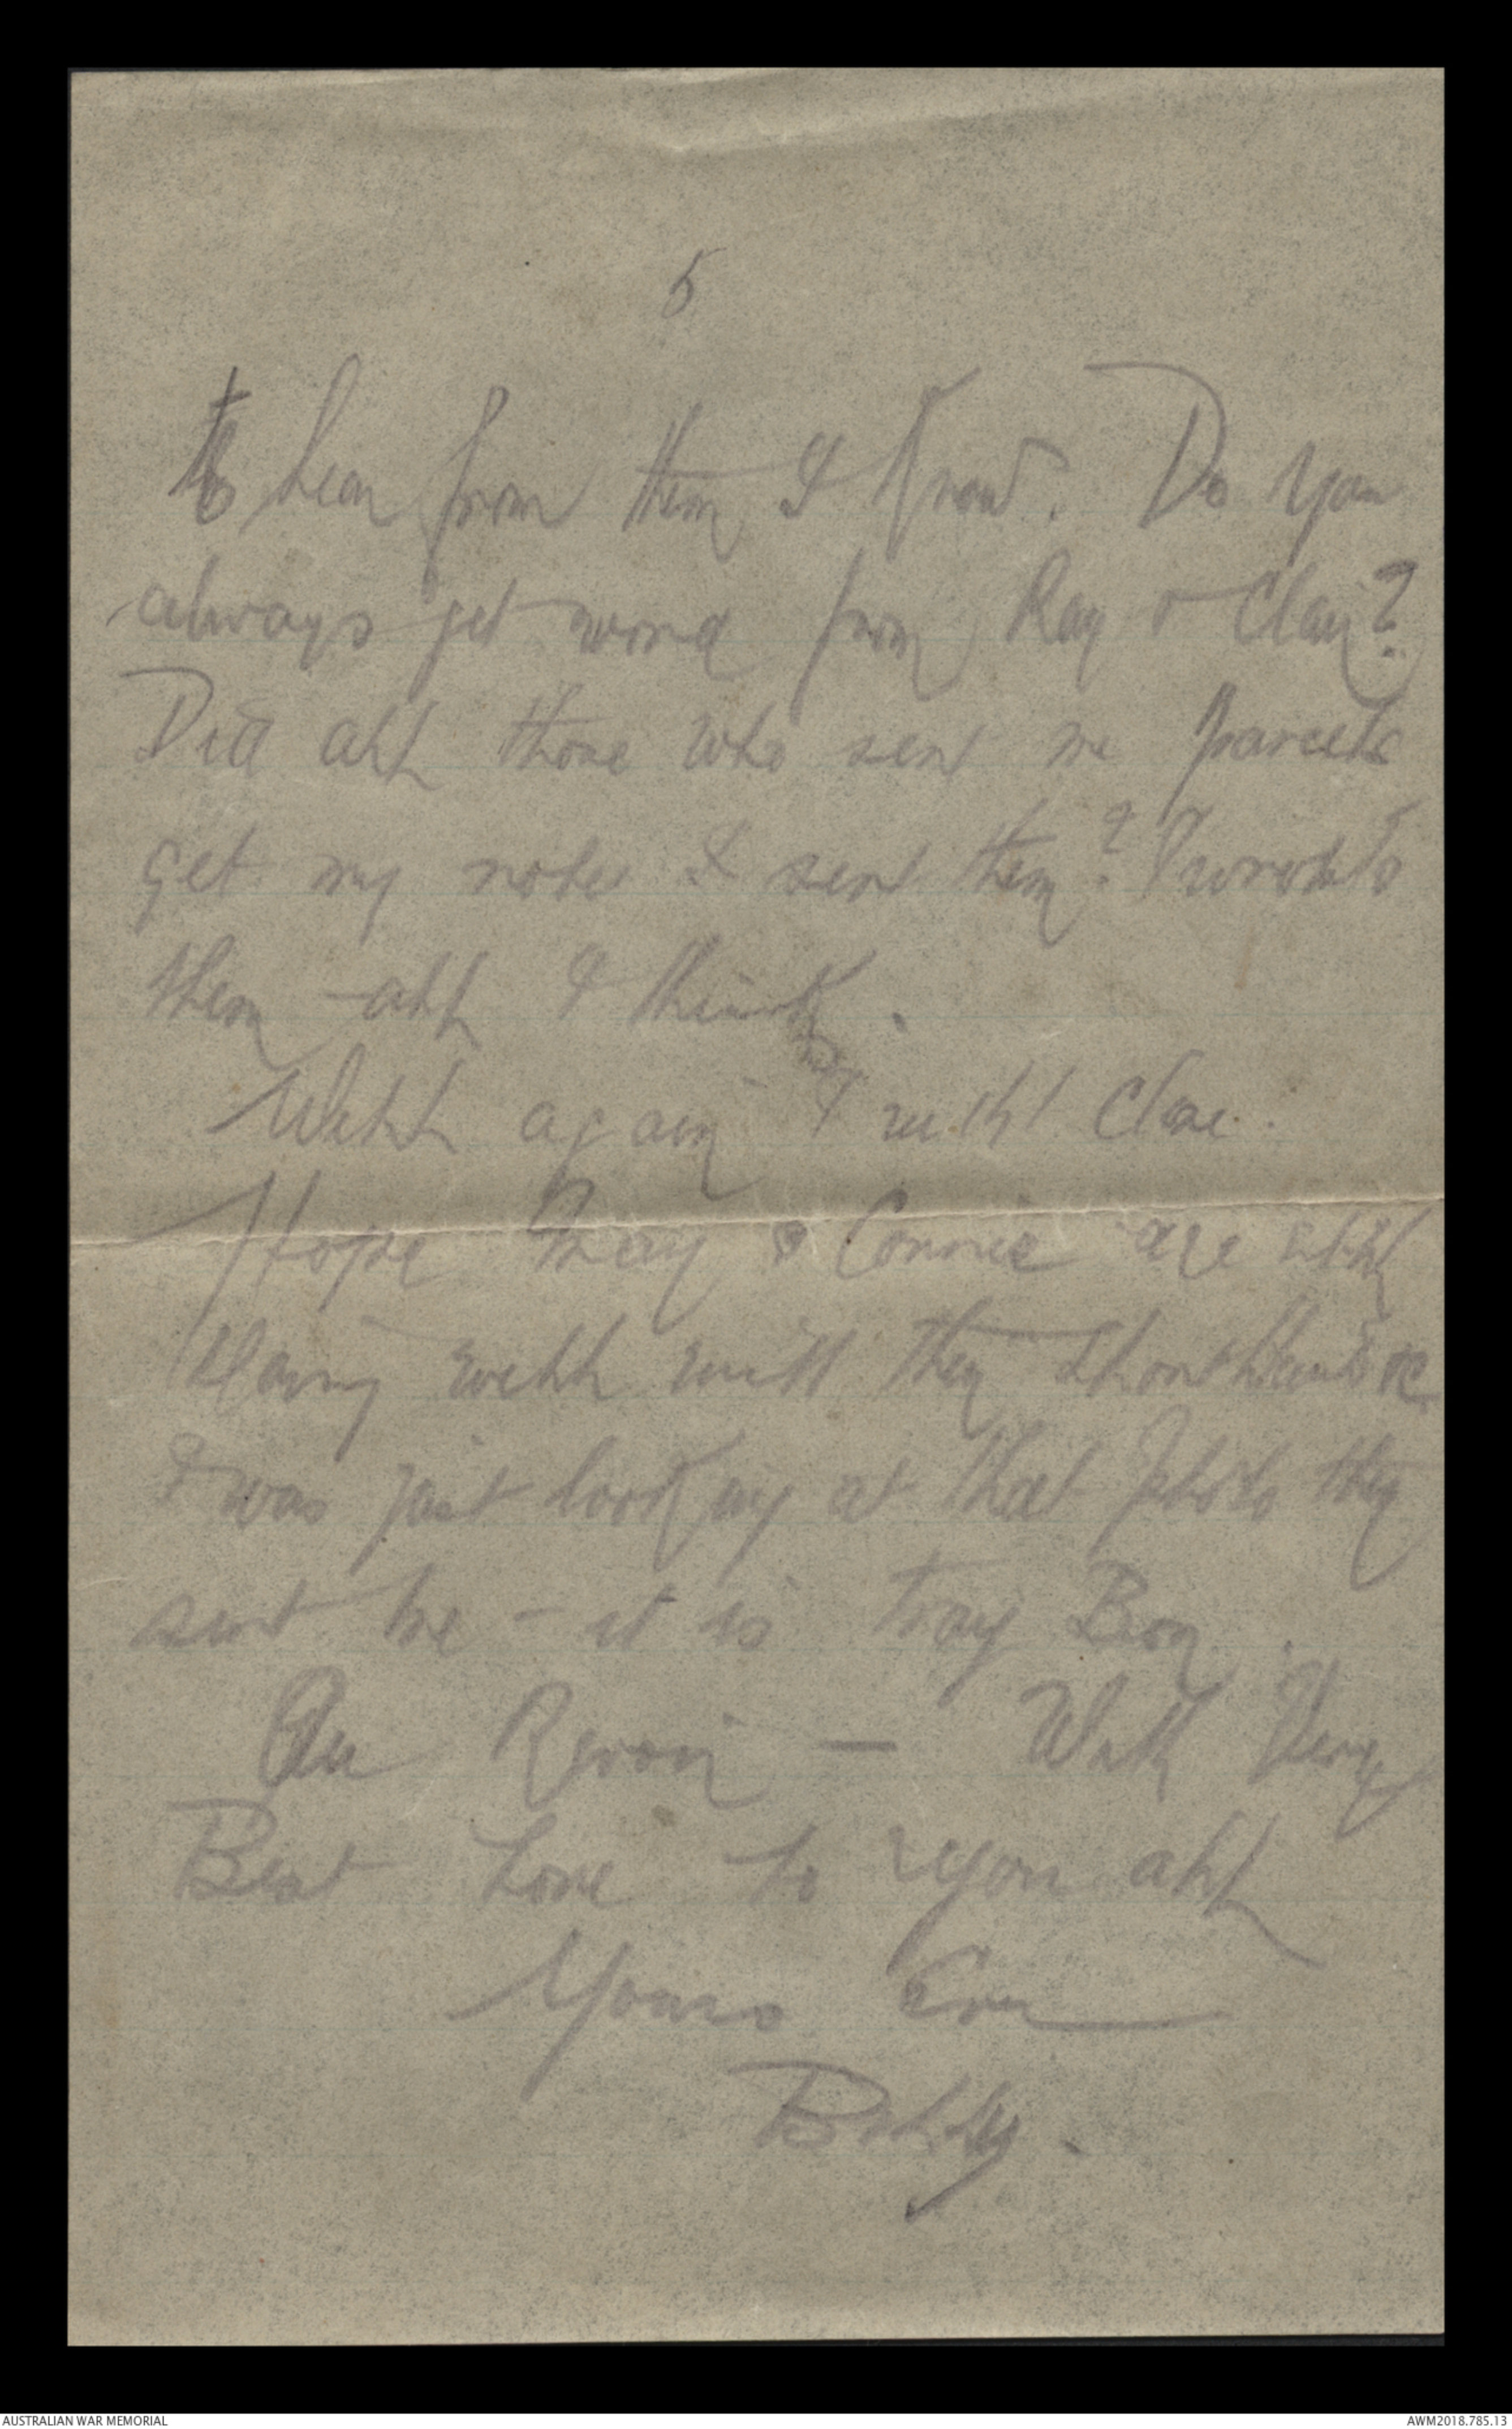 5
to hear from them I know. Do you
always get word from Ray & Clay?
Did all those who sent me parcels
get my notes I sent them? I wrote to
them all I think.
Well again I will close.
Hope May & Connie are still
doing well with they shorthand &c
I was just looking at that photo they
sent me - it is tray Bon.
Au Revoir — With Very
Best Love to you all
Yours Son
Bobby.
AUSTRALIAN WAR MEMORIAL
AWM2018.785.13